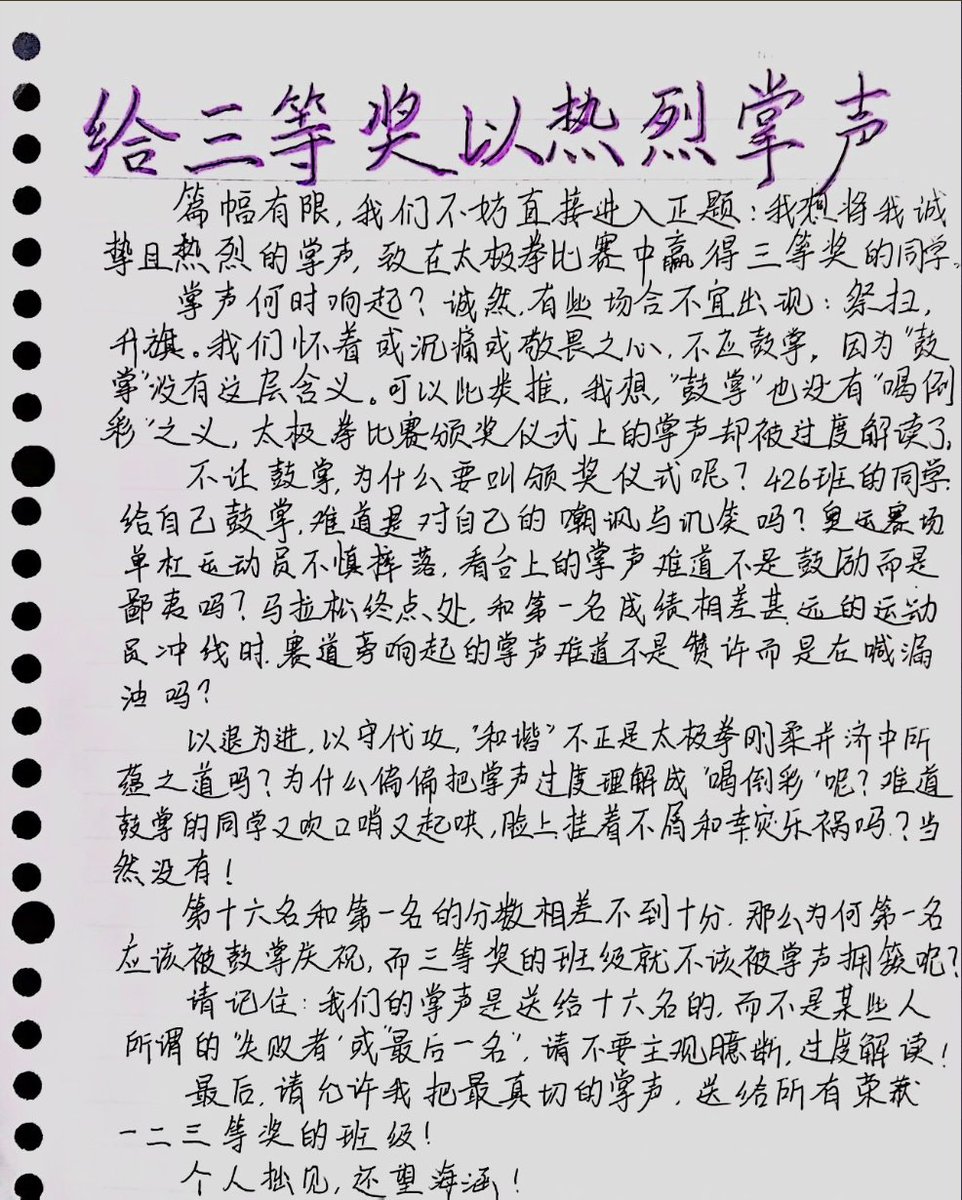 给三等奖以热烈掌声
篇幅有限，我们不妨直接进入正题：我想将我诚
挚且热烈的掌声，致在太极拳比赛中赢得三等奖的同学。
掌声何时响起？诚然，有些场合不宜出现：祭扫，
升旗。我们怀着或沉痛或敬畏之心，不应鼓掌，因为“鼓
掌”没有这层含义。可以此类推，我想，“鼓掌”也没有“喝倒
彩”之义，太极拳比赛颁奖仪式上的掌声却被过度解读了。
不让鼓掌，为什么要叫颁奖仪式呢？426班的同学
给自己鼓掌，难道是对自己的嘲讽与讥笑吗？奥运赛场
单杠运动员不慎摔落，看台上的掌声难道不是鼓励而是
鄙夷吗？马拉松终点处，和第一名成绩相差甚远的运动
员冲线时，赛道旁响起的掌声难道不是赞许而是在喊漏
油吗？
以退为进，以守代攻，“和谐”不正是太极拳刚柔并济中所
蕴之道吗？为什么偏偏把掌声过度理解成“喝倒彩”呢？难道
鼓掌的同学又吹口哨又起哄，脸上挂着不屑和幸灾乐祸吗？当
然没有！
第十六名和第一名的分数相差不到十分，那么为何第一名
应该被鼓掌庆祝，而三等奖的班级就不该被掌声拥簇呢？
请记住：我们的掌声是送给十六名的，而不是某些人
所谓的“失败者”或“最后一名”，请不要主观臆断，过度解读！
最后，请允许我把最真切的掌声，送给所有荣获
一二三等奖的班级！
个人拙见，还望海涵！